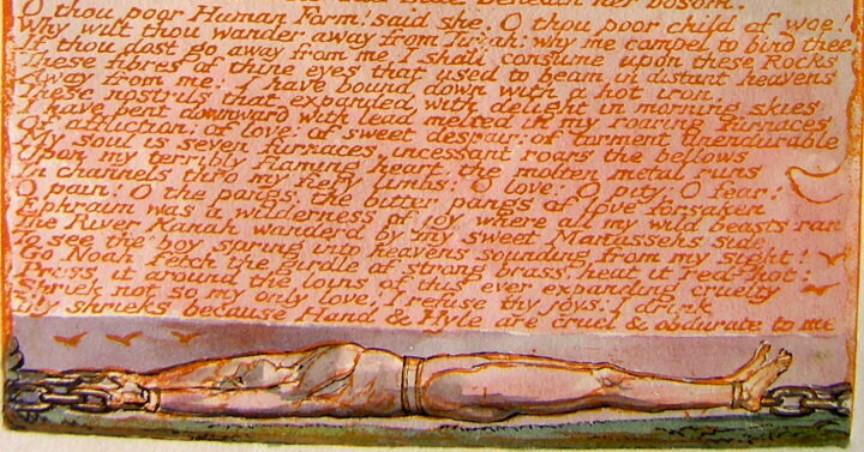 beneath her bosom.
O thou poor Human Form! said she. O thou poor child of woe!
Why wilt thou wander away from Tirzah: why me compel to bind thee
If thou dost go away from me I shall consume upon these Rocks
These fibres of thine eyes that used to beam in distant heavens
Away from me: I have bound down with a hot iron.
These nostrils that expanded with delight in morning skies
I have bent downward with lead melted in my roaring furnaces
Of affliction; of love; of sweet despair; of torment unendurable
My soul is seven furnaces, incessant roars the bellows
Upon my terribly flaming heart, the molten metal runs
In channels thro my fiery limbs: O love: O pity: O fear:
O pain! O the pangs, the bitter pangs of love forsaken
Ephraim was a wilderness of joy where all my wild beasts ran
The River Kanah wanderd by my sweet Manassehs side
To see the boy spring into heavens sounding from my sight!
Go Noah fetch the girdle of strong brass, heat it red-hot:
Press it around the loins of this ever expanding cruelty
Shriek not so my only love; I refuse thy joys: I drink
thy shrieks because Hand & Hyle are cruel & obdurate to me